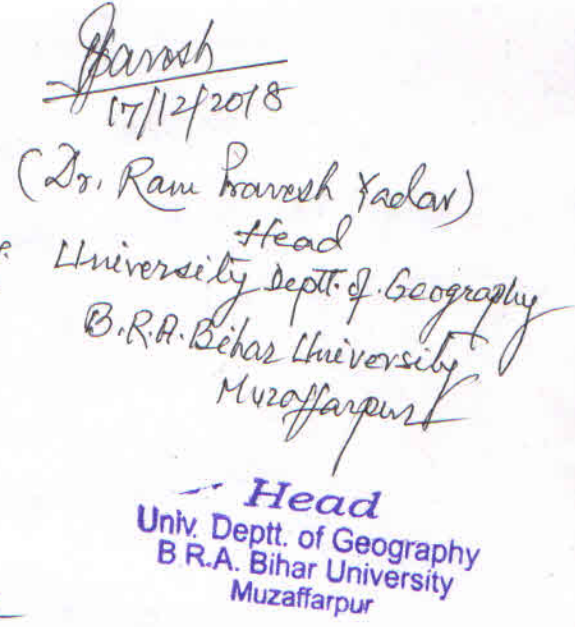 Pravesh
17/12/2018
(Dr. Ram Pravesh Yadav)
Head
University Deptt. of Geography
B.R.A. Bihar University
Muzaffarpur
Head
Univ. Deptt. of Geography
B.R.A. Bihar University
Muzaffarpur